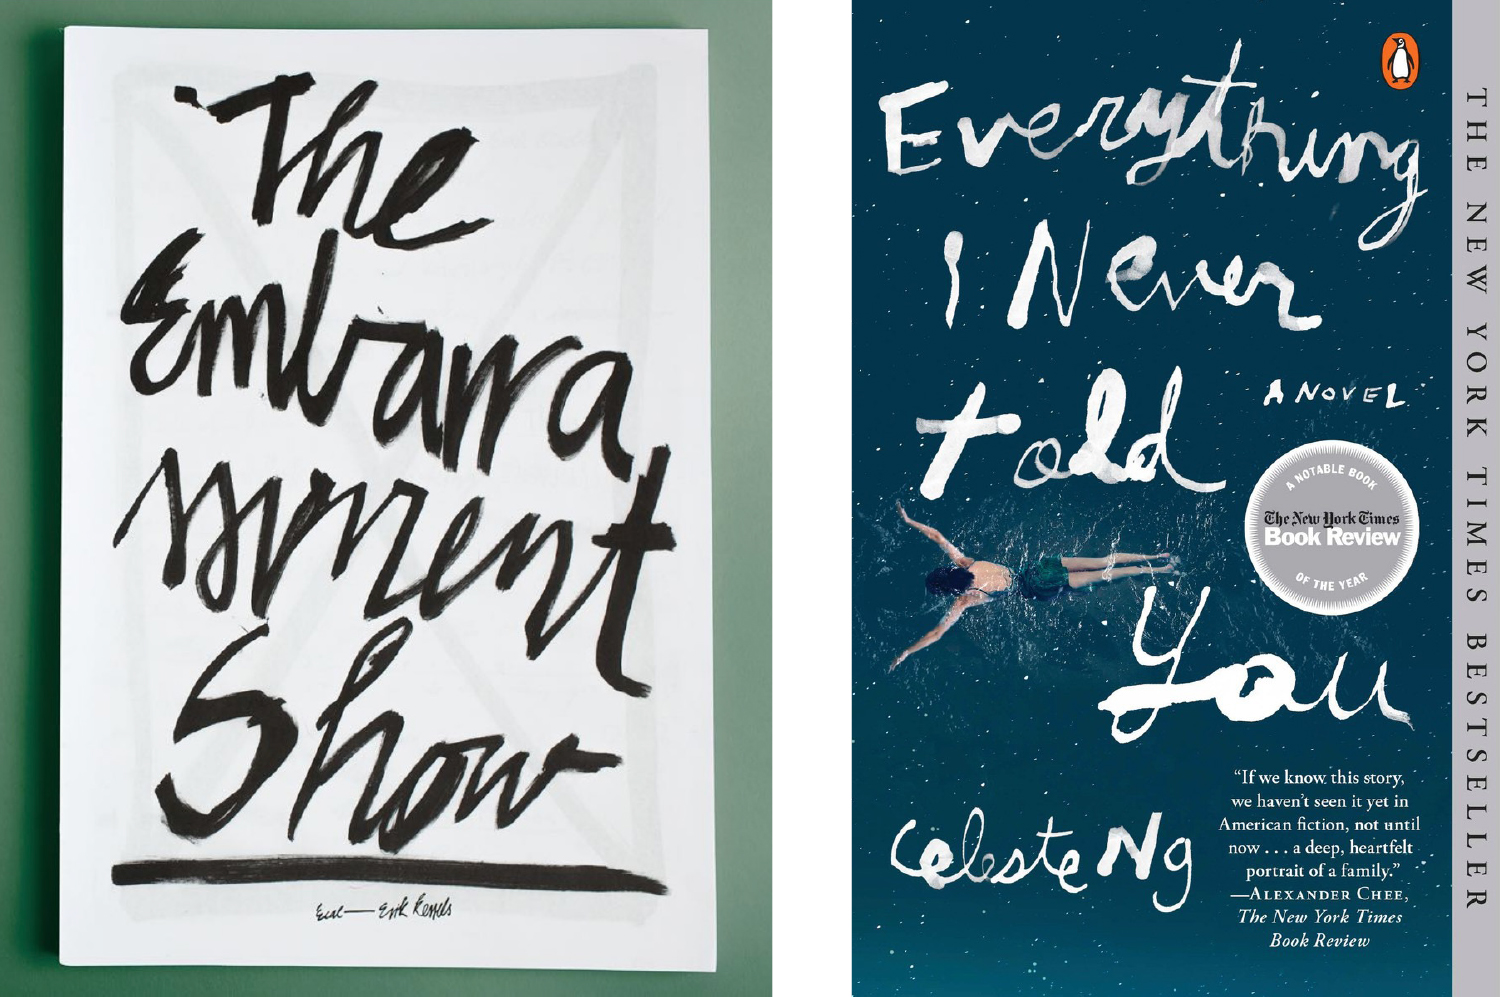 The
Embarra
ssment
Show
Ecal — Erik Kessels
Everything
I Never
told
You
A NOVEL
A NOTABLE BOOK
The New York Times
Book Review
OF THE YEAR
Celeste Ng
“If we know this story,
we haven’t seen it yet in
American fiction, not until
now . . . a deep, heartfelt
portrait of a family.”
—ALEXANDER CHEE,
The New York Times
Book Review
THE NEW YORK TIMES BESTSELLER